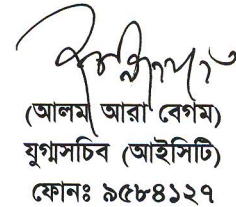 (আলম আরা বেগম)
যুগ্মসচিব (আইসিটি)
ফোনঃ ৯৫৮৪১২৭